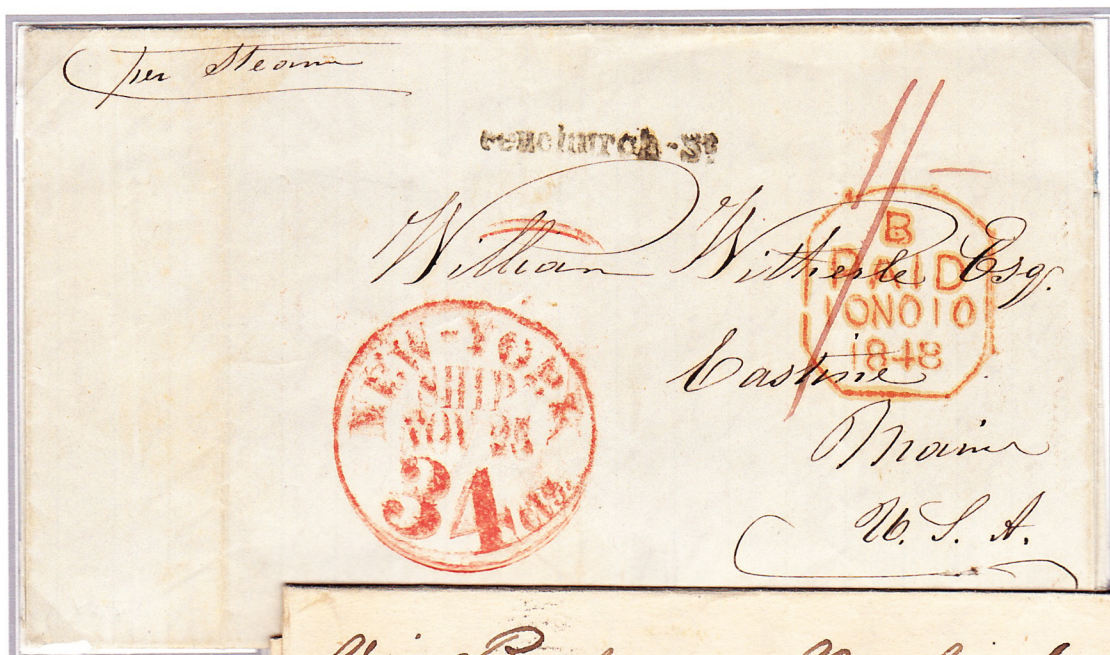 per Steam
Fenchurch-St
William Witherle Esqr.
B
PAID
10 NO 10
1848
Castine
Maine
U. S. A.
NEW-YORK
SHIP
NOV 25
34 cts.